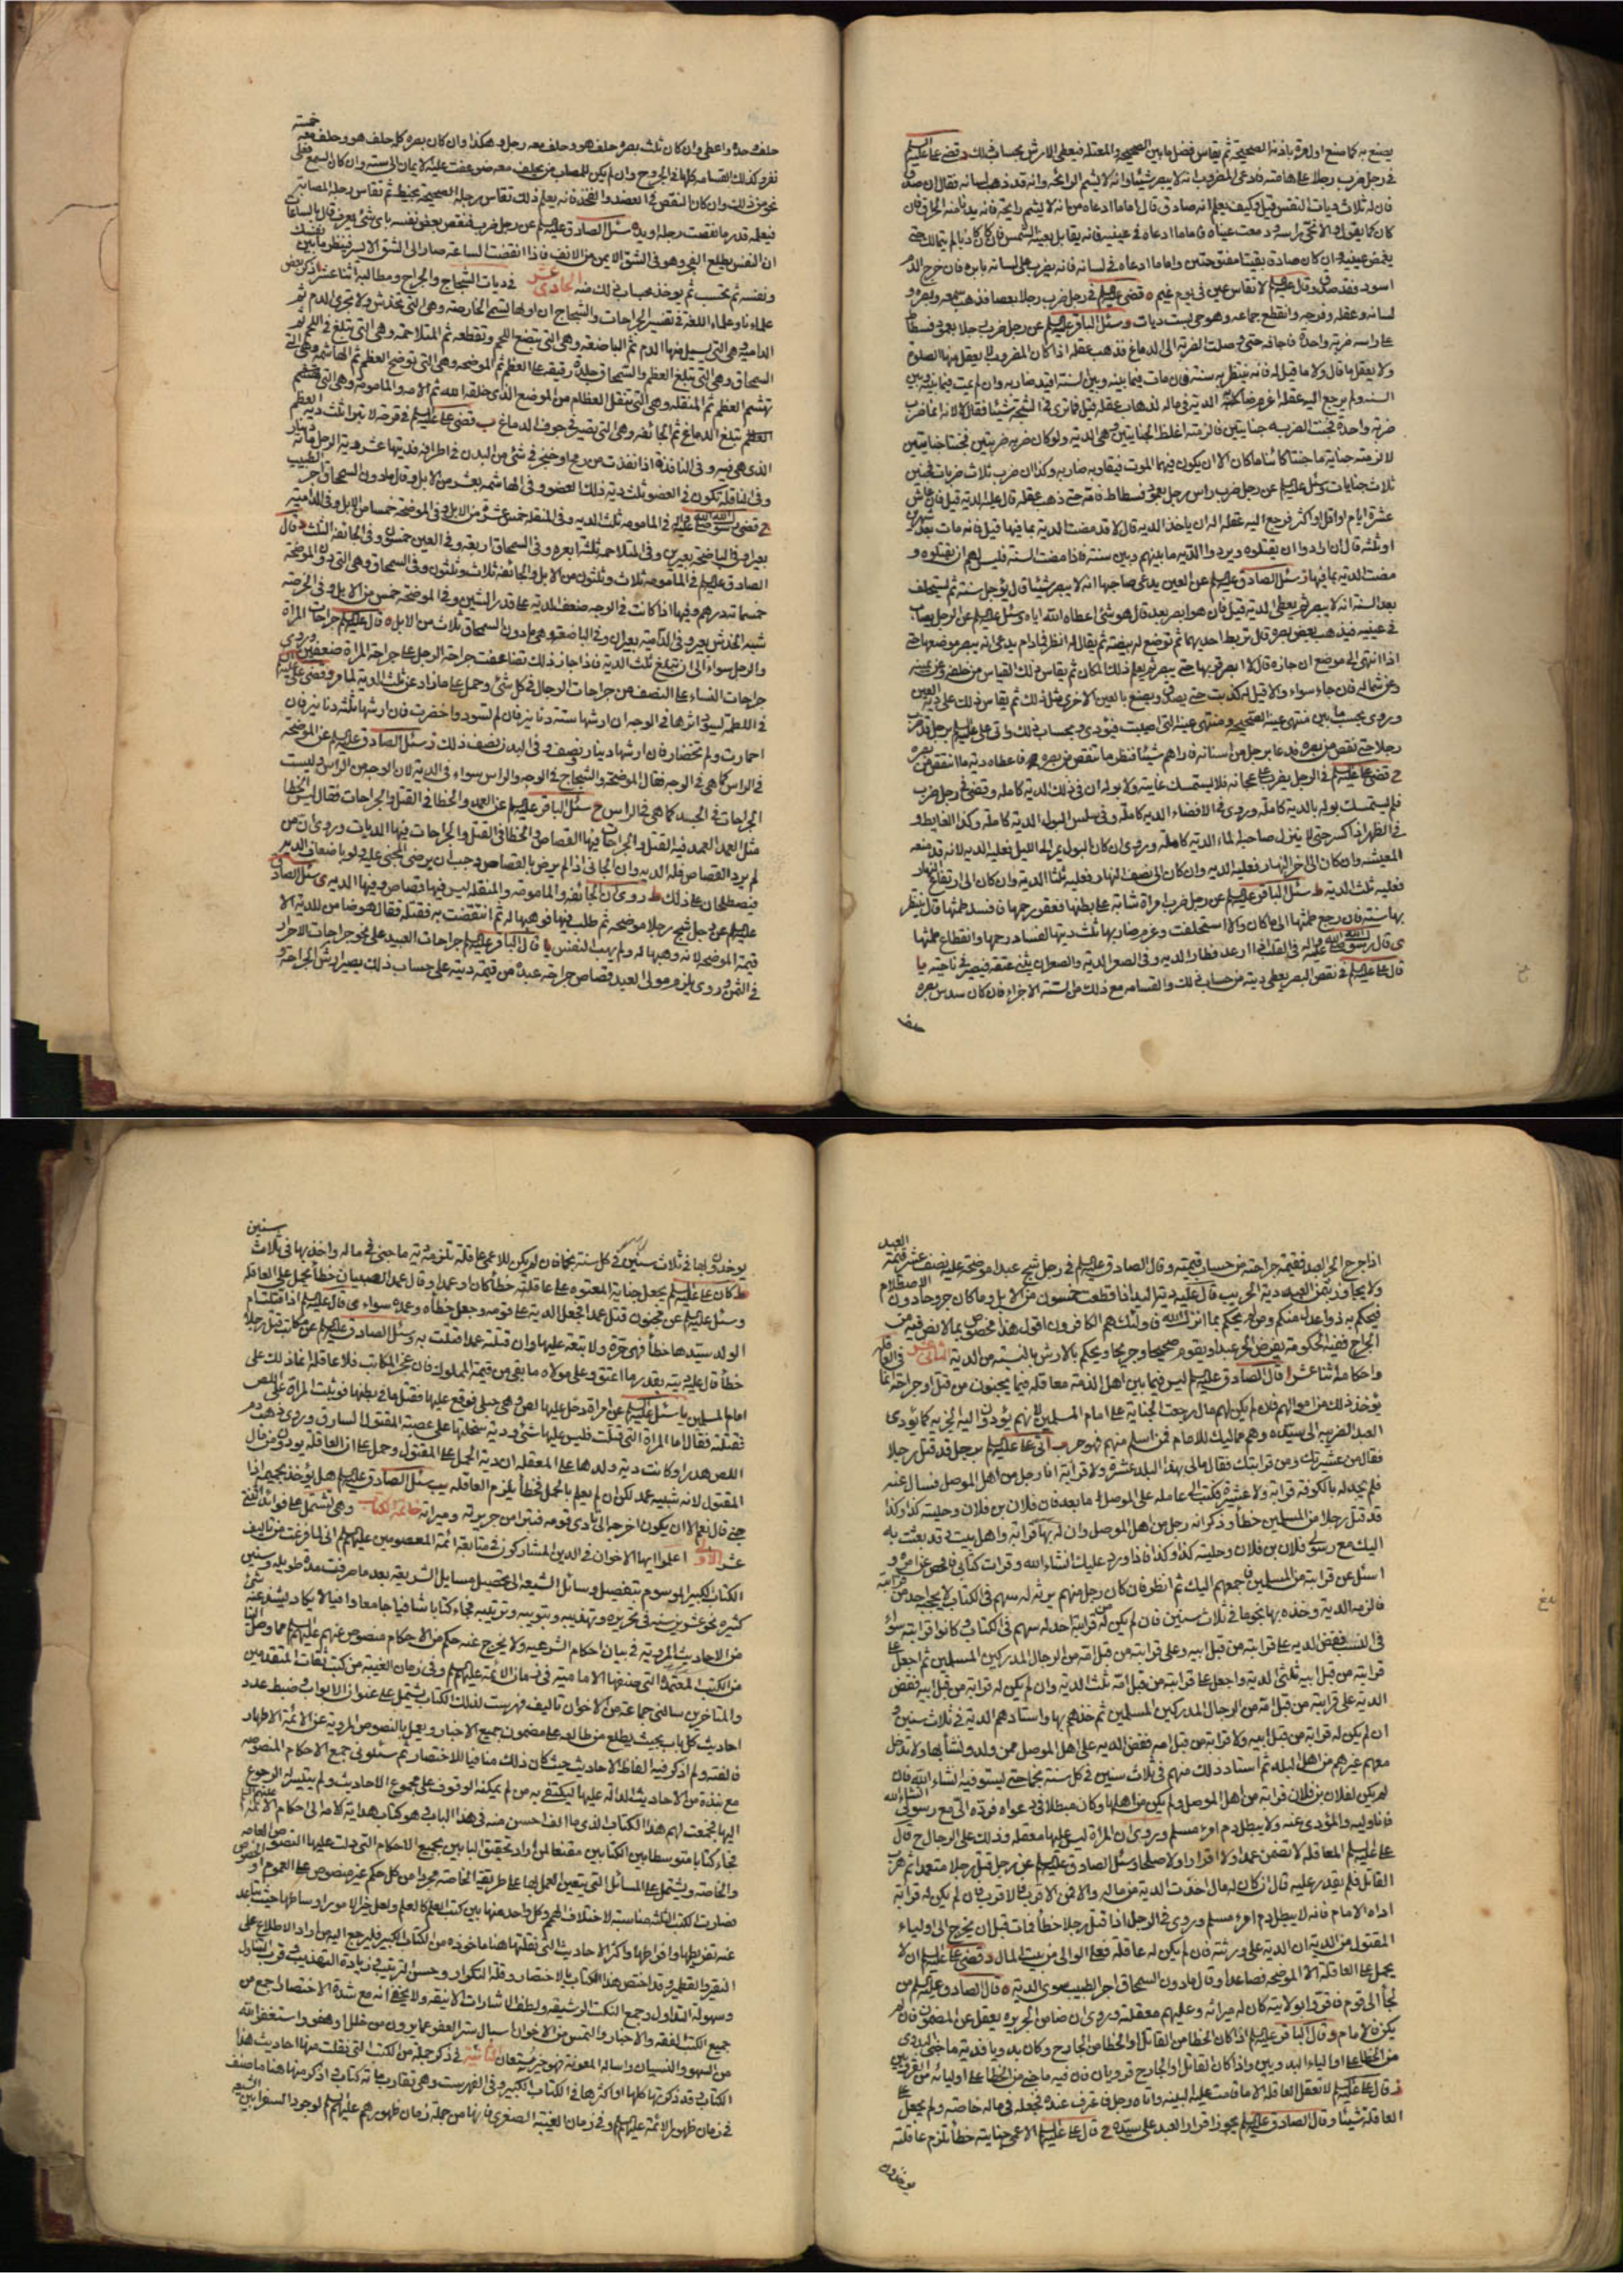 يصنع به كما صنع اول مرة باذنه الصحيحة ثم يقاس فضل ما بين الصحيحة والمعتلة فيعطى الارش بحساب ذلك وقضى على عليه السلم
في رجل ضرب رجلا على هامته فادعى المضروب انه لا يبصر شيئا وانه لا يشم الرائحة وانه قد ذهب لسانه فقال ان صدق
فان له ثلاث ديات النفس قيل وكيف يعلم انه صادق قال اما ما ادعاه من انه لا يشم رايحة فانه يدنا منه الحراق فان
كان كما يقول والا نحى راسه ودمعت عيناه فاما ما ادعاه في عينيه فانه يقابل بعينه الشمس فان كان كاذبا لم يتمالك حتى
يغمض عينيه وان كان صادقا بقيتا مفتوحتين واما ما ادعاه في لسانه فانه يضرب على لسانه بابرة فان خرج الدم
اسود فقد صدق وقال عليه السلم لا تقاس عين في يوم غيم ه قضى عليه السلم في رجل ضرب رجلا بعصا فذهب سمعه وبصره و
لسانه وعقله وفرجه وانقطع جماعه وهو حي بست ديات و سئل الباقر عليه السلم عن رجل ضرب رجلا بعمود فسطاط
على راسه ضربة واحدة فاجافه حتى وصلت الضربة الى الدماغ فذهب عقله اذا كان المضروب لا يعقل منها الصلوة
ولا يعقل ما قال ولا ما قيل له فانه ينتظر به سنة فان مات فيما بينه وبين السنة اقيد ضاربه وان لم يمت فيما بينه وبين
السنة ولم يرجع اليه عقله اغرم ضاربه الدية في ماله لذهاب عقله قيل فما ترى في الشجة شيئا فقال لا لانه انما ضرب
ضربة واحدة فجنت الضربة جنايتين فالزمته اغلظ الجنايتين وهي الدية ولو كان ضربه ضربتين فجنتا جنايتين
لالزمته جناية ما جنتا كائنا ما كان الا ان يكون فيهما الموت فيقاد به ضاربه وكذا ان ضرب ثلاث ضربات فجنين
ثلاث جنايات وسئل عليه السلم عن رجل ضرب راس رجل بعمود فسطاط فامه حتى ذهب عقله قال عليه الدية قيل فان عاش
عشرة ايام او اقل او اكثر فرجع اليه عقله اله ان ياخذ الدية قال لا قد مضت الدية بما فيها قيل فانه مات بعد شهرين
او ثلثة قال ان ارادوا ان يقتلوه ويردوا الدية ما بينهم وبين سنة فاذا مضت السنة فليس لهم ان يقتلوه و
مضت الدية بما فيها ز سئل الصادق عليه السلم عن العين يدعى صاحبها انه لا يبصر شيئا قال يؤجل سنة ثم يستحلف
بعد السنة انه لا يبصر ثم يعطى الدية قيل فان هو ابصر بعد قال هو شئ اعطاه الله اياه وسئل عليه السلم عن الرجل يصاب
في عينيه فيذهب بعض بصره قال تربط احديهما ثم توضع له بيضة ثم يقال له انظر فما دام يدعى انه يبصر موضعها حتى
اذا انتهى الى موضع ان جازه قال لا ابصر قربها حتى يبصر ثم يعلم ذلك المكان ثم يقاس ذلك القياس من خلفه وعن يمينه
وعن شماله فان جاء سواء والا قيل له كذبت حتى يصدق ويصنع بالعين الاخرى مثل ذلك ثم يقاس ذلك على دية العين
وروى يحسب ما بين منتهى عينه الصحيحة ومنتهى عينه التى اصيبت فيؤدى بحساب ذلك واتى على عليه السلم برجل قد ضرب
رجلا حتى نقص من بصره فدعا برجل من اسنانه فاراهم شيئا فنظر ما نقص من بصره فاعطاه دية ما انتقص من بصره
ح قضى على عليه السلم في الرجل يضرب على عجانه فلا يستمسك غايته ولا بوله ان في ذلك الدية كاملة وقضى في رجل ضرب
فلم يستمسك بوله بالدية كاملة وروى في الافضاء الدية كاملة وفي سلس البول الدية كاملة وكذا الغايط و
في الظهر اذا كسر حتى لا ينزل صاحبه الماء الدية كاملة وروى ان كان البول يمر الى الليل فعليه الدية لانه قد منعه
المعيشة وان كان الى اخر النهار فعليه الدية وان كان الى نصف النهار فعليه ثلثا الدية وان كان الى ارتفاع النهار
فعليه ثلث الدية ط سئل الباقر عليه السلم عن رجل ضرب امراة شابة على بطنها فعقر رحمها فافسد طمثها قال ينتظر
بها سنة فان رجع طمثها الى ما كان والا استحلفت وغرم ضاربها ثلث ديتها لفساد رحمها وانقطاع طمثها
ى قال رسول الله صلى الله عليه واله في القلب اذا ارعد فطار الدية وفي الصعر الدية والصعر ان يثنى عنقه فيصير في ناحية يا
قال على عليه السلم في نقص البصر يعطى ديته من حساب ذلك والقسامه مع ذلك من الستة الاجزاء فان كان سدس بصره
حلف
حلف وحده واعطى وان كان ثلث بصره حلف هو وحلف معه رجل وهكذا وان كان بصره كله حلف هو وحلف معه خمسة
نفر وكذلك القسامه كلها في الجروح وان لم يكن للمصاب من يحلف معه ضوعفت عليه الايمان الى ستة وان كان السمع فعلى
نحو من ذلك وان كان النقص في العضد والفخذ فانه يعلم ذلك تقاس رجله الصحيحة بخيط ثم تقاس رجله المصابة
فيعلم قدر ما نقصت رجله ويده سئل الصادق عليه السلم عن رجل ضرب فنقص بعض نفسه باى شئ يعرف قال بالساعات
ان النفس يطلع الفجر وهو في الشق الايمن من الانف فاذا انقضت الساعة صار الى الشق الايسر فينظر ما بين نفسك
ونفسه ثم يحتسب ثم يوخذ بحساب ذلك منه الحادى عشر في ديات الشجاج والجراح ومطالبه اثنا عشر ا ذكر بعض
علمائنا وعلماء اللغة في تفسير الجراحات والشجاج ان اولها تسمى الحارصة وهى التى تخدش ولا تجرى الدم ثم
الدامية وهى التى يسيل منها الدم ثم الباضعة وهى التى تبضع اللحم وتقطعه ثم المتلاحمة وهى التى تبلغ في اللحم ثم
السمحاق وهى التى تبلغ العظم والسمحاق جلدة رقيقة على العظم ثم الموضحة وهى التى توضح العظم ثم الهاشمة وهى التى
تهشم العظم ثم المنقلة وهى التى تنقل العظام من الموضع الذى خلقه الله ثم الامه والمامومة وهى التى
تبلغ الدماغ ثم الجائفة وهى التى تصير في جوف الدماغ ب قضى على عليه السلم في قرحة لا تبرا ثلث دية العظم
الذى هى فيه وفي النافذة اذا نفذت من رمح او خنجر في شئ من البدن في اطرافه فديتها عشر دية الرجل مائة دينار
وفي الناقلة تكون في العضو ثلث دية ذلك العضو وفي الهاشمه بعشر من الابل وقال ما دون السمحاق اجر الطبيب
ج قضى رسول الله صلى الله عليه واله في المامومه ثلث الدية وفي المنقلة خمس عشرة من الابل وفي الموضحة خمسا من الابل وفي الدامية
بعيرا وفي الباضعة بعيرين وفي المتلاحمة ثلثة ابعرة وفي السمحاق اربعة وفي العين خمسون وفي الجائفة الثلث د قال
الصادق عليه السلم في المامومة ثلاث وثلثون من الابل والجائفة ثلاث وثلثون وفي السمحاق وهى التى دون الموضحة
خمسمائة درهم وفيها اذا كانت في الوجه ضعف الدية على قدر الشين وفي الموضحة خمس من الابل وفي الحرصة
شبه الخدش بعير وفي الدامية بعيران وفي الباضعة وهى ما دون السمحاق ثلاث من الابل ه قال عليه السلم جراحات المراة
والرجل سواء الى ان تبلغ ثلث الدية فاذا جاز ذلك تضاعفت جراحة الرجل على جراحة المراة ضعفين وروى ان
جراحات النساء على النصف من جراحات الرجال في كل شئ وحمل على ما زاد عن ثلث الدية لما مر و قضى على عليه السلم
في اللطمة يسود اثرها في الوجه ان ارشها ستة دنانير فان لم تسود واخضرت فان ارشها ثلثة دنانير فان
احمارت ولم تخضار فان ارشها دينار ونصف وفي البدن نصف ذلك ز سئل الصادق عليه السلم عن الموضحة
في الراس كما هى في الوجه فقال الموضحة والشجاج في الوجه والراس سواء في الدية لان الوجه من الراس وليست
الجراحات في الجسد كما هى في الراس ح سئل الباقر عليه السلم عن العمد والخطا في القتل والجراحات فقال ليس الخطا
مثل العمد العمد فيه القتل والجراحات فيها القصاص والخطا في القتل والجراحات فيها الديات وروى ان من
لم يرد القصاص فله الدية وان الجانى اذا لم يرض بالقصاص وجب ان يرضى المجنى عليه ولو باضعاف الدية
فيصطلحان على ذلك ط روى ان الجائفة والمامومة والمنقلة ليس فيها قصاص وفيها الدية ى سئل الصادق
عليه السلم عن رجل شج رجلا موضحة ثم طلب فيها فوهبها له ثم انتقضت به فقتلته فقال هو ضامن للدية الا
قيمة الموضحة لانه وهبها له ولم يهب النفس يا قال الباقر عليه السلم جراحات العبيد على نحو جراحات الاحرار
في الثمن وروى يلزم مولى العبد قصاص جراحة عبده من قيمة ديته على حساب ذلك يصير ارش الجراحة و
اذا جرح الحر العبد فقيمة جراحته من حساب قيمته وقال الصادق عليه السلم في رجل شج عبدا موضحة عليه نصف عشر قيمة العبد
ولا يجاوز بثمن العبد دية الحر يب قال عليه السلم دية اليد اذا قطعت خمسون من الابل وما كان جروحا دون الاصطلام
فيحكم به ذوا عدل منكم ومن لم يحكم بما انزل الله فاولئك هم الكافرون اقول هذا مخصوص بما لا نص فيه من
الجراح ففيه الحكومة بفرض الحر عبدا ويقوم صحيحا وجريحا ويحكم بالارش بالنسبة من الدية الثانى عشر في العاقلة
واحكامه اثنا عشر ا قال الصادق عليه السلم ليس فيما بين اهل الذمة معاقلة فيما يجنون من قتل او جراحة انما
يؤخذ ذلك من اموالهم فان لم يكن لهم مال رجعت الجناية على امام المسلمين لانهم يؤدون اليه الجزية كما يؤدى
العبد الضريبة الى سيده وهم مماليك للامام فمن اسلم منهم فهو حر ب اتى على عليه السلم برجل قد قتل رجلا
فقال من عشيرتك ومن قرابتك فقال ما لى بهذا البلد عشيرة ولا قرابة انا رجل من اهل الموصل فسال عنه
فلم يجد له بالكوفة قرابة ولا عشيرة فكتب الى عامله على الموصل اما بعد فان فلان بن فلان وحليته كذا وكذا
قد قتل رجلا من المسلمين خطأ وذكر انه رجل من اهل الموصل وان له بها قرابة واهل بيت وقد بعثت به
اليك مع رسولى فلان بن فلان وحليته كذا وكذا فاذا ورد عليك انشاء الله وقرات كتابى فافحص عن امره و
اسئل عن قرابته من المسلمين فاجمعهم اليك ثم انظر فان كان رجل منهم يرثه له سهم في الكتاب لا يحجبه احد من قرابته
فالزمه الدية وخذه بها نجوما في ثلاث سنين فان لم يكن له من قرابته احد له سهم في الكتاب وكانوا قرابته سواء
في النسب ففض الدية على قرابته من قبل ابيه وعلى قرابته من قبل امه من الرجال المدركين المسلمين ثم اجعل على
قرابته من قبل ابيه ثلثى الدية واجعل على قرابته من قبل امه ثلث الدية وان لم يكن له قرابة من قبل ابيه ففض
الدية على قرابته من قبل امه من الرجال المدركين المسلمين ثم خذهم بها واستادهم الدية في ثلاث سنين و
ان لم يكن له قرابة من قبل ابيه ولا قرابة من قبل امه ففض الدية على اهل الموصل ممن ولد ونشأ بها ولا تدخل
معهم غيرهم من اهل البلد ثم استاد ذلك منهم في ثلاث سنين في كل سنة نجما حتى تستوفيه انشاء الله فان
لم يكن لفلان بن فلان قرابة من اهل الموصل ولم يكن من اهلها وكان مبطلا في دعواه فرده الى مع رسولى انشاء الله
فانا وليه والمؤدى عنه ولا يبطل دم امرء مسلم وروى ان المراة ليس عليها معقلة وذلك على الرجال ج قال
على عليه السلم العاقلة لا تضمن عمدا ولا اقرارا ولا صلحا وسئل الصادق عليه السلم عن رجل قتل رجلا متعمدا ثم هرب
القاتل فلم يقدر عليه قال ان كان له مال اخذت الدية من ماله والا فمن الاقرب فالاقرب فان لم يكن له قرابة
اداه الامام فانه لا يبطل دم امرء مسلم وروى في الرجل اذا قتل رجلا خطأ فمات قبل ان يخرج الى اولياء
المقتول من الدية ان الدية على ورثته فان لم يكن له عاقلة فعلى الوالى من بيت المال د قضى على عليه السلم ان لا
يحمل على العاقلة الا الموضحة فصاعدا وقال ما دون السمحاق اجر الطبيب سوى الدية ه قال الصادق عليه السلم من
لجأ الى قوم فاقروا بولايته كان له ميراثه وعليهم معقلته وروى ان ضامن الجريرة يعقل عن المضمون فان لم
يكن فالامام و قال الباقر عليه السلم اذا كان الخطا من القاتل او الخطا من الجارح وكان بدويا فدية ما جنى البدوى
من الخطا على اولياء البدويين واذا كان القاتل او الجارح قرويا فان دية ما جنى من الخطا على اوليائه من القرويين
ز قال على عليه السلم لا تعقل العاقلة الا ما قامت عليه البينة واتاه رجل فاعترف عنده فجعله في ماله خاصة ولم يجعل على
العاقلة شيئا وقال الصادق عليه السلم يجوز اقرار العبد على سيده ح قال على عليه السلم الاعمى جنايته خطأ تلزم عاقلته
يوخذون
يوخذون بها في ثلاث سنين في كل سنة نجما فان لم يكن للاعمى عاقلة تلزمه دية ما جنى في ماله واخذ بها في ثلاث سنين
ط كان على عليه السلم يجعل جناية المعتوه على عاقلته خطأ كان او عمدا وقال عمد الصبيان خطأ يحمل على العاقلة
وسئل عليه السلم عن مجنون قتل عمدا فجعل الدية على قومه وجعل خطأه وعمده سواء ى قال عليه السلم اذا قتلت ام
الولد سيدها خطأ فهى حرة ولا تبعة عليها وان قتلته عمدا قتلت به وسئل الصادق عليه السلم عن مكاتب قتل رجلا
خطأ قال عليه ديته بقدر ما اعتق وعلى مولاه ما بقى من قيمة المملوك فان عجز المكاتب فلا عاقلة له انما ذلك على
امام المسلمين يا سئل عليه السلم عن امراة دخل عليها لص وهى حبلى فوقع عليها فقتل ما في بطنها فوثبت المراة على اللص
فقتلته فقال اما المراة التى قتلت فليس عليها شئ ودية سخلتها على عصبة المقتول السارق وروى ذهب دم
اللص هدرا وكانت دية ولدها على المعقلة ان دية الحمل على المقتول وحمل على ان العاقلة يودون من مال
المقتول لانه شبيه عمد لكن ان لم يعلم بالحمل فخطأ يلزم العاقلة يب سئل الصادق عليه السلم هل يؤخذ بحميمه اذا
جنى قال نعم الا ان يكون اخرجه الى نادى قومه فتبرا من جريرته وميراثه خاتمة الكتاب وهى تشتمل على فوائد اثنتى
عشر الاولى اعلموا ايها الاخوان في الدين المشاركون في متابعة ائمة المعصومين عليهم السلم انى لما فرغت من تاليف
الكتاب الكبير الموسوم بتفصيل وسائل الشيعة الى تحصيل مسايل الشريعة بعدما صرفت مدة طويلة وسنين
كثيره نحو عشرين سنة في تحريره وتهذيبه وتبويبه وترتيبه فجاء كتابا شافيا جامعا وافيا لا يكاد يشذ عنه شئ
من الاحاديث المروية في بيان احكام الشرعيه ولا يخرج عنه حكم من الاحكام منصوص عنهم عليهم السلم مما وصل الينا
من الكتب المعتمدة التى صنفها الامامية في زمان الائمة عليهم السلم وفي زمان الغيبة من كتب ثقات المتقدمين
والمتاخرين سالنى جماعة من الاخوان تاليف فهرست لذلك الكتاب يشتمل على عنوان الابواب وضبط عدد
احاديث كل باب بحيث يطلع من طالعه على مضمون جميع الاخبار ويعمل بالنصوص المروية عن الائمة الاطهار
فالفته ولم اذكر فيه الفاظ الاحاديث حيث كان ذلك منافيا للاختصار ثم سئلونى جمع الاحكام المنصوصة
مع نبذة من الاحاديث الدالة عليها ليكتفى به من لم يمكنه الوقوف على مجموع الاحاديث ولم يتيسر له الرجوع
اليها فجمعت لهم هذا الكتاب الذى ما الف احسن منه في هذا الباب وهو كتاب هداية الامة الى احكام الائمة عليهم السلم
فجاء كتابا متوسطا بين الكتابين مقنعا لمن اراد تحقيق البابين بجميع الاحكام التى دلت عليها النصوص العامة
والخاصة ويشتمل على المسائل التى يتعين العمل بها على طريقة الخاصة مجردا من كل حكم غير منصوص على العموم او الخصوص
فصارت الكتب الثلثة مناسبة لاختلاف الهمم وكل واحد منها بين كتب العلم كالعلم ولعل خير الامور اوساطها حيث تباعد
عنه تفريطها وافراطها واكثر الاحاديث التى نقلتها هنا ماخوذة من الكتاب الكبير فليرجع اليه من اراد الاطلاع على
النقير والقطمير وقد اختص هذا الكتاب بالاختصار وقلة التكرار وحسن الترتيب وزيادة التهذيب وقرب التناول
وسهولة التداول وجمع النكت الرشيقة ولطف الاشارات الانيقة ولا يخفى انه مع شدة الاختصار جمع من
جميع الكتب الفقه والاخبار والتمس من الاخوان اسبال ستر العفو عما يرون من خلل وهفو واستغفر الله
من السهو والنسيان واساله المعونة فهو خير مستعان الثانية في ذكر جملة من الكتب التى نقلت منها احاديث هذا
الكتاب وقد ذكرتها كلها او اكثرها في الكتاب الكبير وفي الفهرست وهى تقارب مائة كتاب واذكر منها هنا ما صنف
في زمان ظهور الائمة عليهم السلم وفي زمان الغيبة الصغرى فانها من جملة زمان ظهورهم عليهم السلم لوجود السفرا بين الشيعة